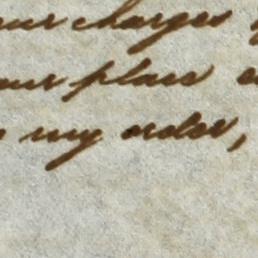 our charges
our place
my order,